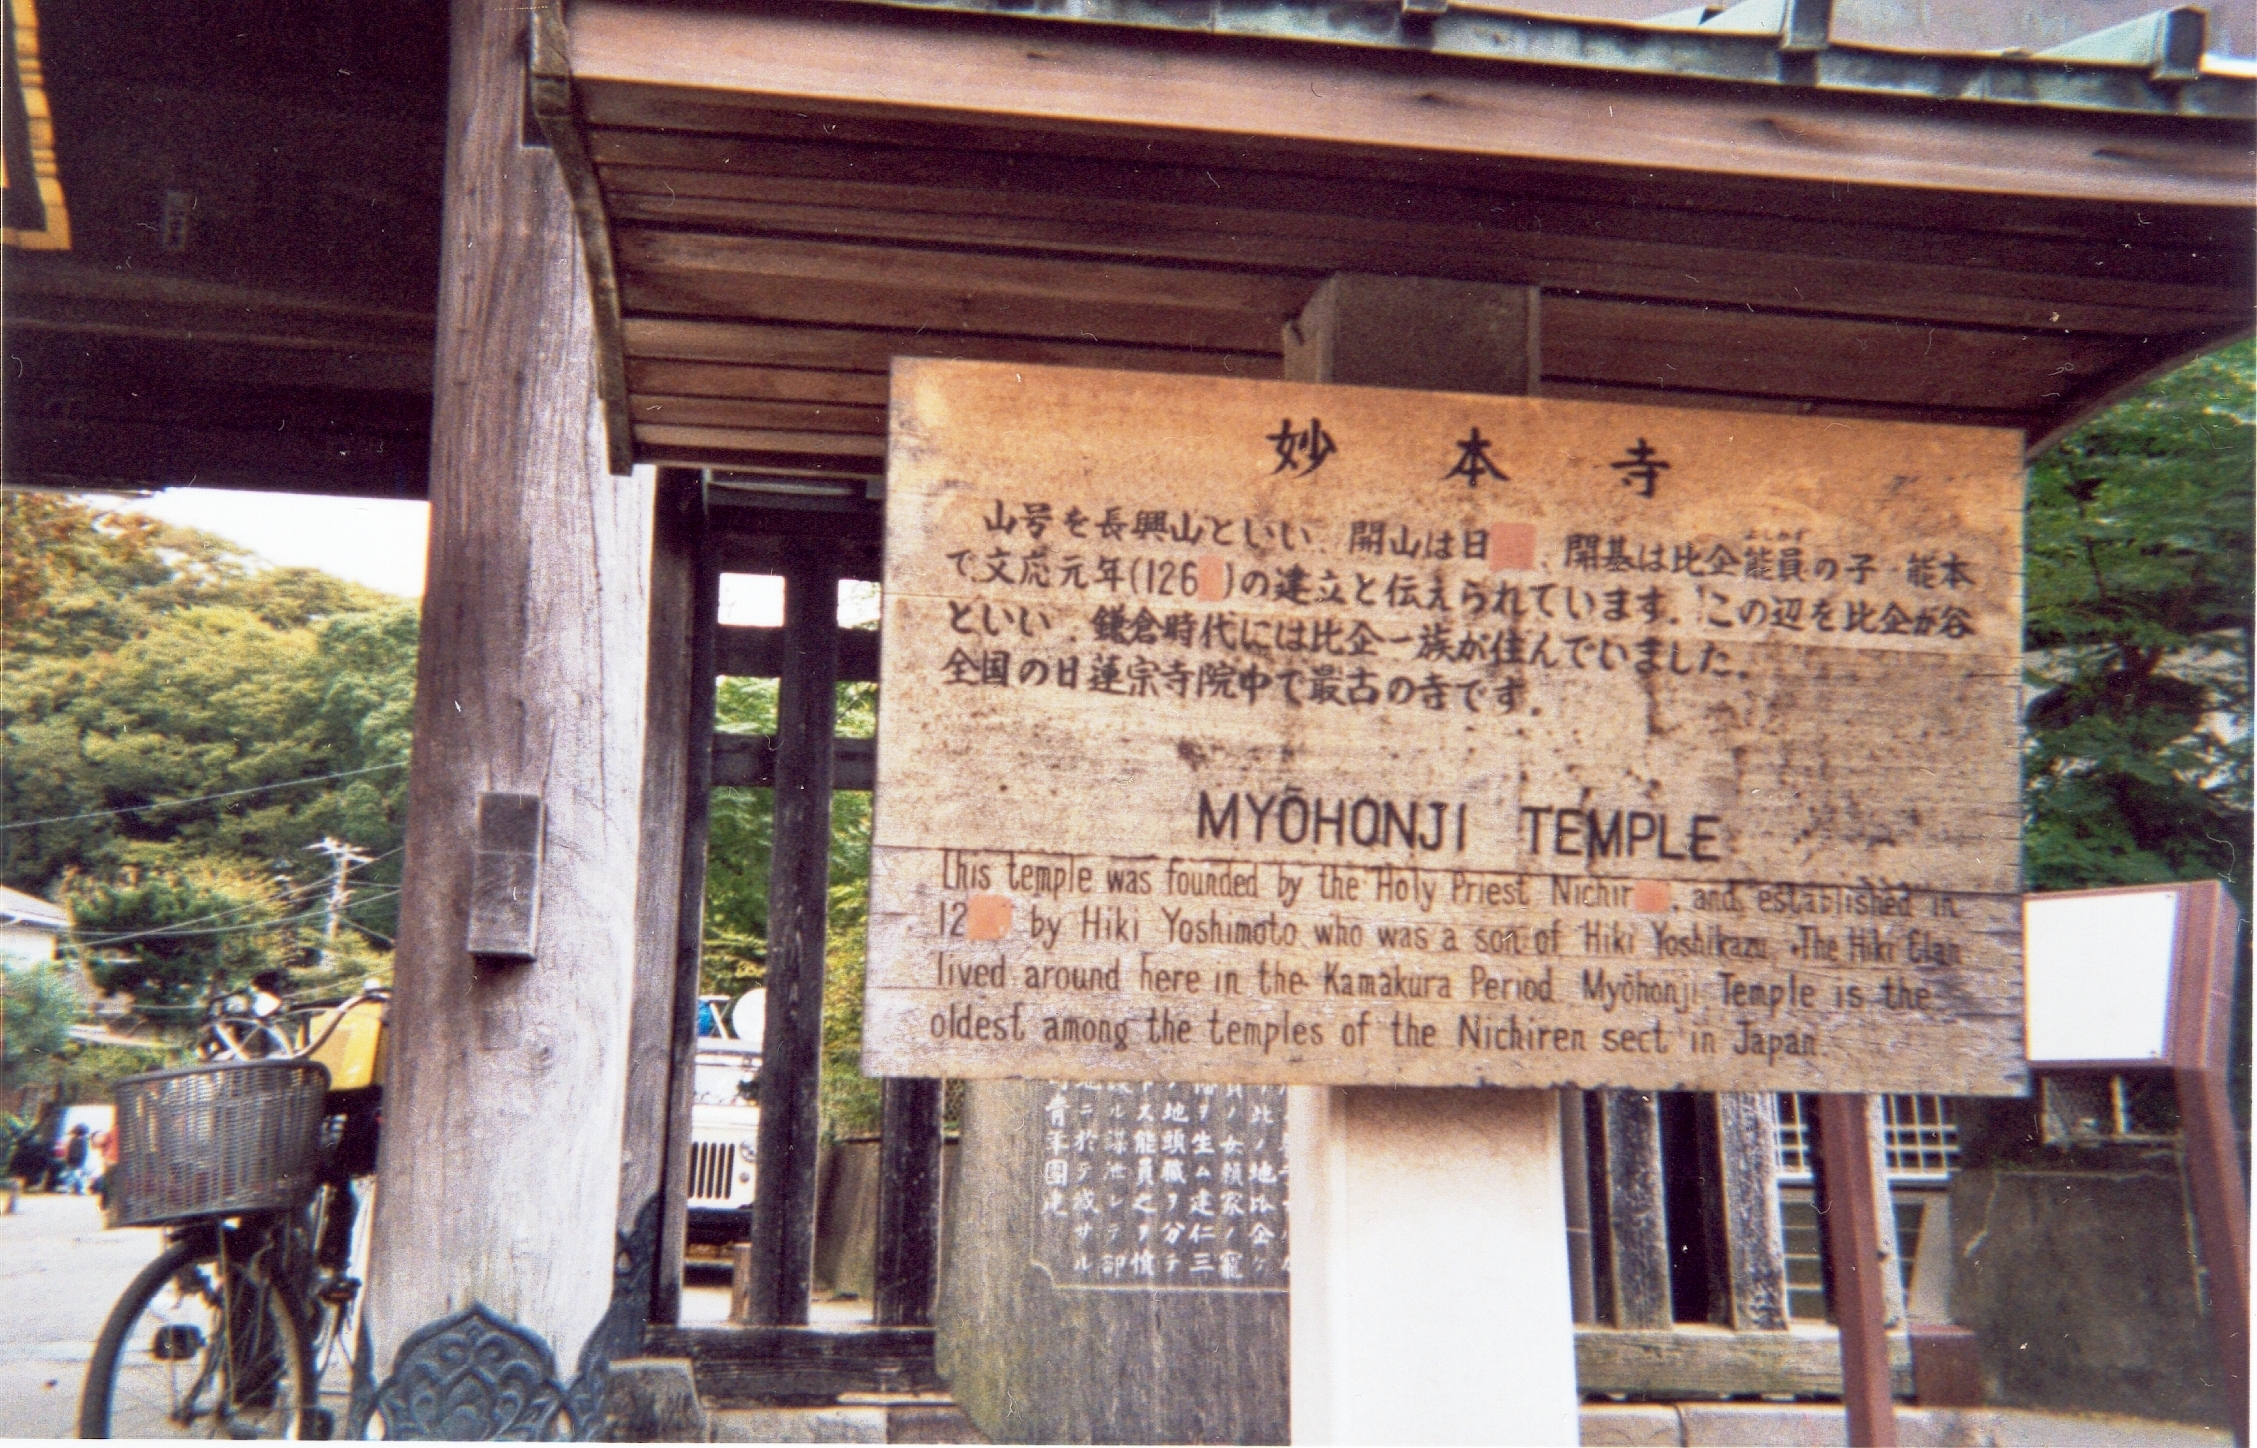 妙本寺
山号を長興山といい、開山は日 、開基は比企能員の子 能本
よしかず
で文応元年(126 )の建立と伝えられています。この辺を比企が谷
といい、鎌倉時代には比企一族が住んでいました。
全国の日蓮宗寺院中で最古の寺です。
MYŌHONJI TEMPLE
This temple was founded by the Holy Priest Nichir , and established in
12 by Hiki Yoshimoto who was a son of Hiki Yoshikazu. The Hiki Clan
lived around here in the Kamakura Period. Myōhonji Temple is the
oldest among the temples of the Nichiren sect in Japan.
此ノ地比企ケ
ノ女頼家ノ寵
ヲ生ム建仁三
地頭職ヲ分テ
ス能員之ヲ憤
ル謀泄レテ
ニ於テ滅サル
青年團建